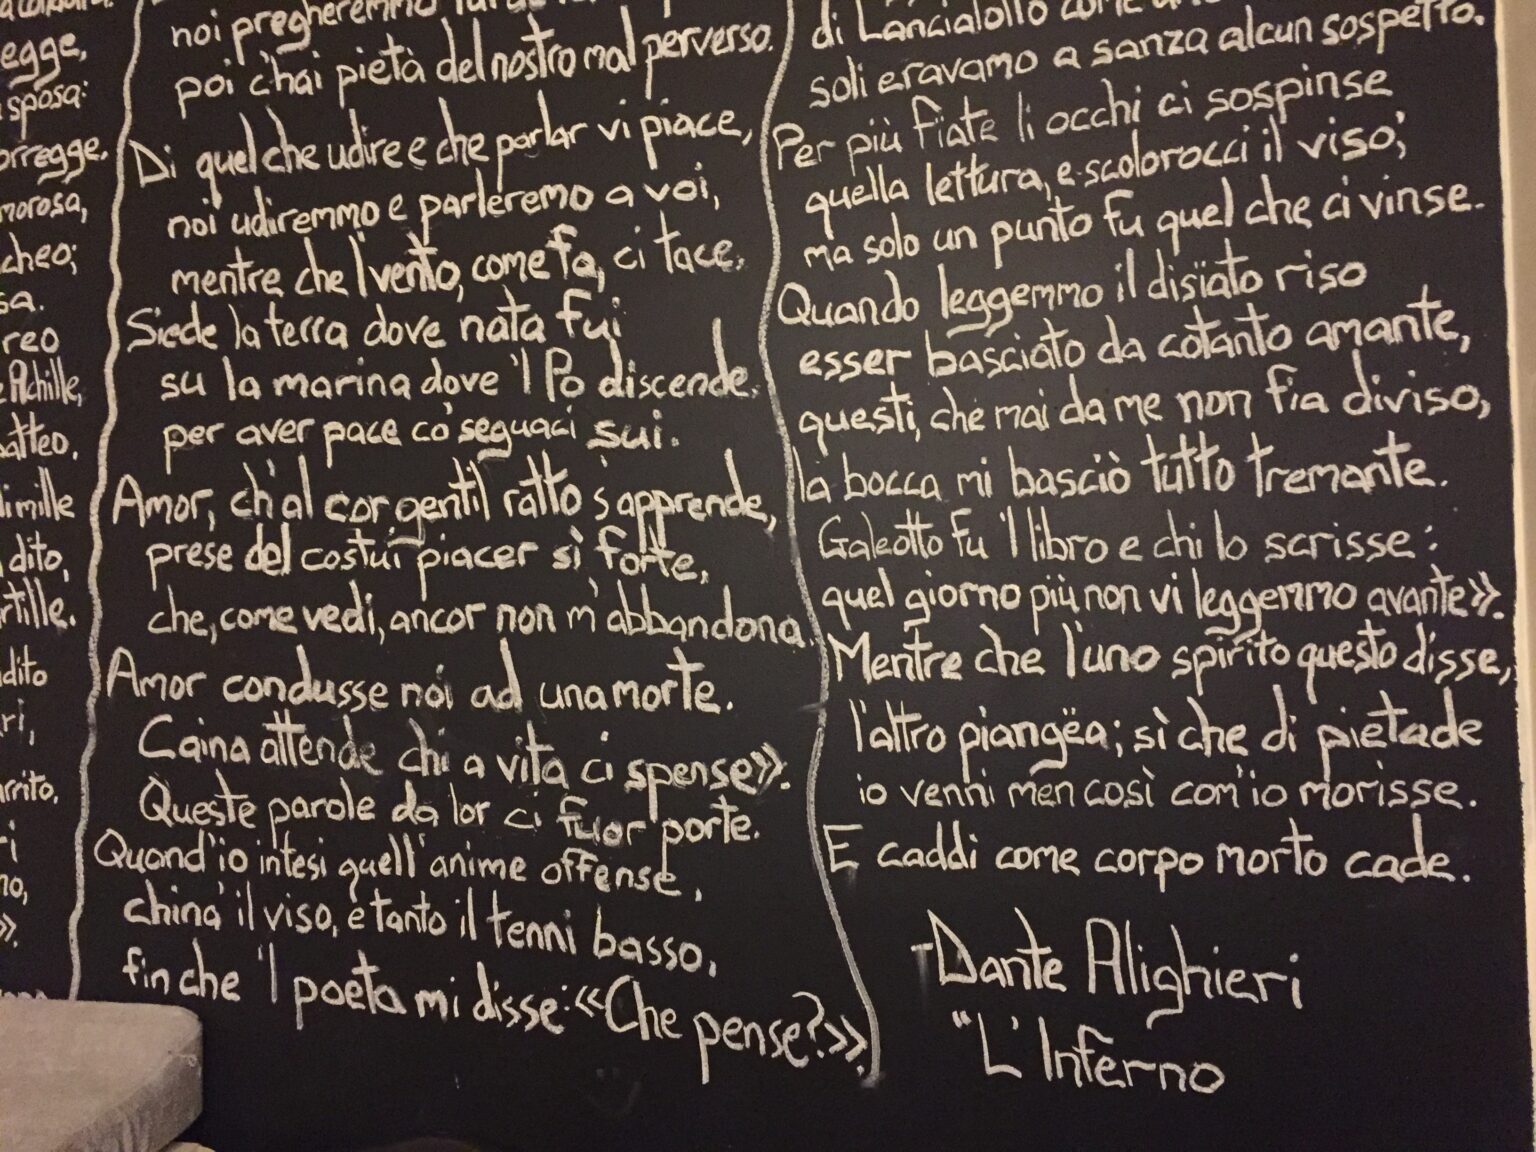 egge,
sposa:
orregge.
morosa,
cheo;
sa.
reo
e Achille,
patteo.
di mille
dito,
rtille.
dito
ri,
arrito.
ri
no,
».
noi pregheremmo
poi c'hai pietà del nostro mal perverso.
Di quel che udire e che parlar vi piace,
noi udiremmo e parleremo a voi,
mentre che l'vento, come fa, ci tace.
Siede la terra dove nata fui
su la marina dove 'l Po discende
per aver pace co' seguaci sui.
Amor, ch'al cor gentil ratto s'apprende,
prese del costui piacer sì forte,
che, come vedi, ancor non m'abbandona.
Amor condusse noi ad una morte.
Caina attende chi a vita ci spense».
Queste parole da lor ci fuor porte.
Quand'io intesi quell'anime offense,
china' il viso, e tanto il tenni basso,
fin che 'l poeta mi disse: «Che pense?»
di Lancialotto come
soli eravamo a sanza alcun sospetto.
Per più fiate li occhi ci sospinse
quella lettura, e scolorocci il viso;
ma solo un punto fu quel che ci vinse.
Quando leggemmo il disïato riso
esser basciato da cotanto amante,
questi, che mai da me non fia diviso,
la bocca mi basciò tutto tremante.
Galeotto fu 'l libro e chi lo scrisse:
quel giorno più non vi leggemmo avante».
Mentre che l'uno spirito questo disse,
l'altro piangëa; sì che di pietade
io venni men così com'io morisse.
E caddi come corpo morto cade.
-Dante Alighieri
"L'Inferno